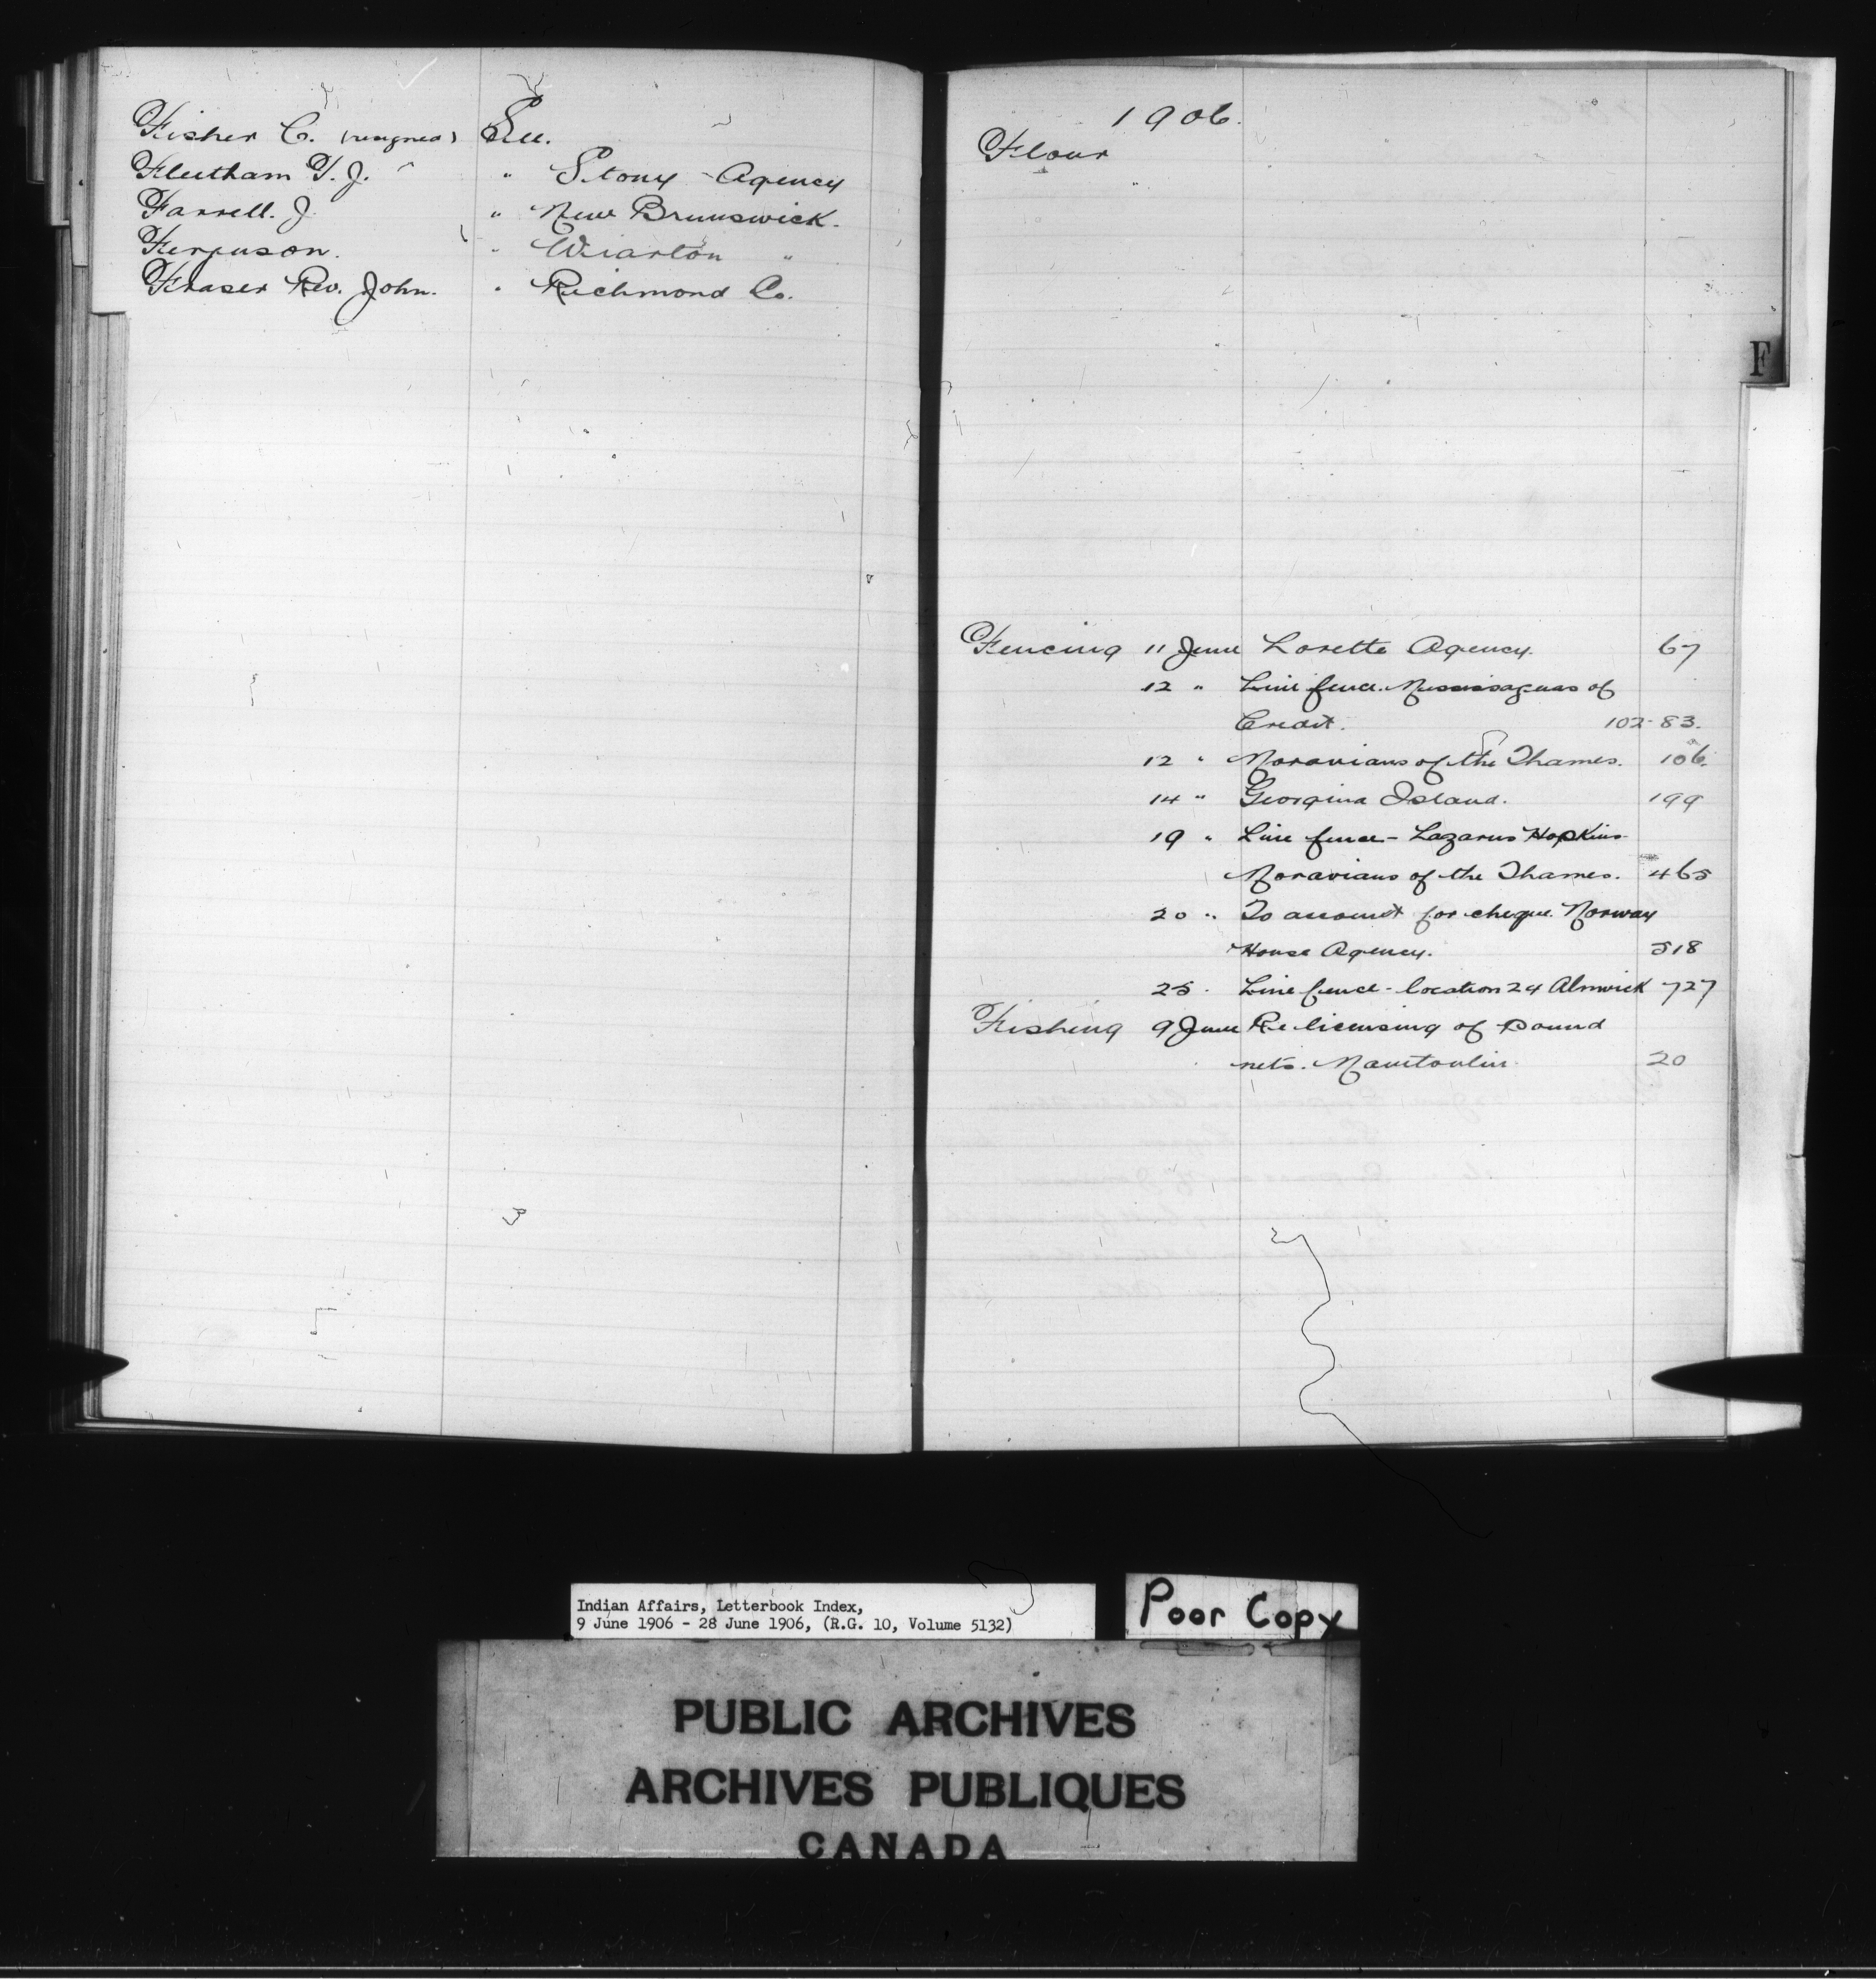 Fisher C. (resigned) See.
Fleetham T. J. " Stony Agency
Farrell. J. " New Brunswick.
Ferguson. " Wiarton "
Fraser Rev. John. " Richmond Co.
1906.
Flour
F
Fencing 11 June Lorette Agency. 67
12 " Line fence. Mississaguas of
Credit. 102-83.
12 " Moravians of the Thames. 106.
14 " Georgina Island. 199
19 " Line fence - Lazarus Hopkins
Moravians of the Thames. 465
20 " To account for cheque. Norway
House Agency. 518
25 . Line fence - location 24 Alnwick 727
Fishing 9 June Re licensing of pound
nets. Manitoulin. 20
Indian Affairs, Letterbook Index,
9 June 1906 - 28 June 1906, (R.G. 10, Volume 5132)
Poor Copy
PUBLIC ARCHIVES
ARCHIVES PUBLIQUES
CANADA